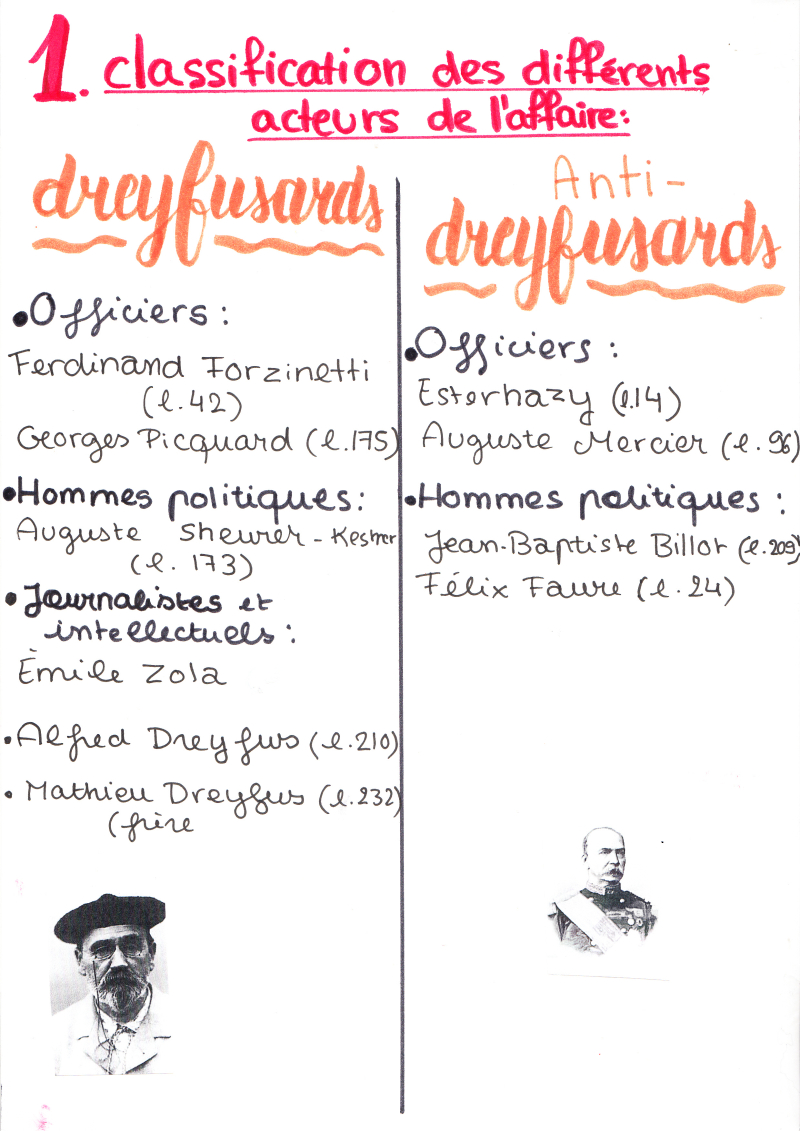 1. Classification des différents
acteurs de l'affaire:
dreyfusards
• Officiers :
Ferdinand Forzinetti
(l.42)
Georges Picquard (l.175)
• Hommes politiques:
Auguste Sheurer-Kestner
(l. 173)
• Journalistes et
intellectuels :
Èmile Zola
• Alfred Dreyfus (l.210)
• Mathieu Dreyfus (l.232)
(frère
Anti-
dreyfusards
• Officiers :
Esterhazy (l.14)
Auguste Mercier (l.96)
• Hommes politiques :
Jean-Baptiste Billot (l.209)
Félix Faure (l.24)